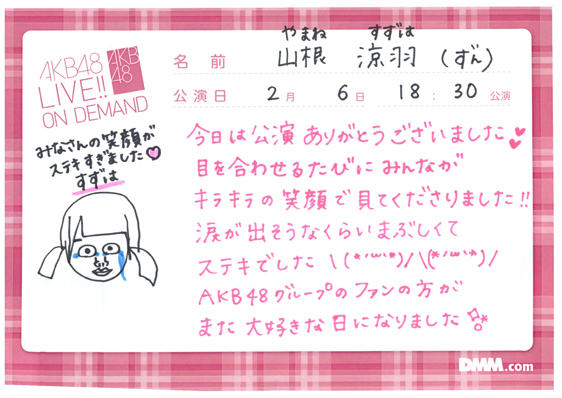 AKB48
LIVE!!
ON DEMAND
AKB
48
やまね すずは
名前 山根 涼羽 (ずん)
公演日 2月 6日 18:30 公演
みなさんの笑顔が
ステキすぎました♡
すずは
今日は公演ありがとうございました♥
目を合わせるたびにみんなが
キラキラの笑顔で見てくださりました!!
涙が出そうなくらいまぶしくて
ステキでした \(*'ω'*)/\(*'ω'*)/
AKB48グループのファンの方が
また大好きな日になりました
DMM.com